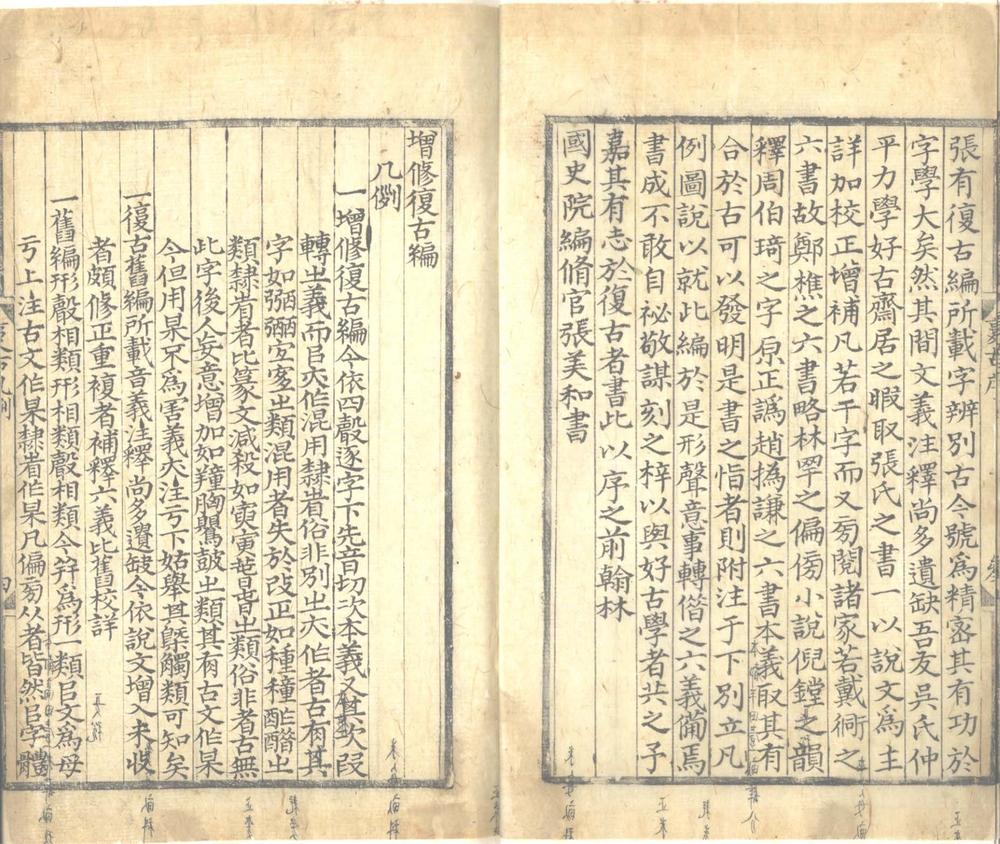 張有復古編所載字辨別古今號爲精密其有功於
字學大矣然其間文義注釋尚多遺缺吾友吳氏仲
平力學好古齋居之暇取張氏之書一以說文爲主
詳加校正增補凡若干字而又旁閱諸家若戴侗之
六書故鄭樵之六書略林罕之偏傍小說倪鏜之韻
釋周伯琦之字原正譌趙撝謙之六書本義取其有
合於古可以發明是書之恉者則附注于下別立凡
例圖說以就此編於是形聲意事轉偕之六義備焉
書成不敢自祕敬謀刻之梓以與好古學者共之予
嘉其有志於復古者書此以序之前翰林
國史院編脩官張美和書
增修復古編
凡例
一增修復古編今依四聲逐字下先音切次本義又其次叚
轉㞢義而㠯夾作混用隸者俗非別㞢夾作者古有其
字如弼㢸㝎㝎㞢類混用者失於攷正如種穜酢醋㞢
類隸者者比篆文減殺如寅寅㫺昔㞢類俗非者古無
此字後人妄意增加如䍶胸鷖鼓㞢類其有古文作杲
今但用杲不爲害義夾注亏下姑舉其槩觸類可知矣
一復古舊編所載音義注釋尚多遺缺今依說文增入未收
者頗修正重複者補釋六義比舊校詳
一舊編形聲相類形相類聲相類今并爲形一類㠯文爲母
亏上注古文作杲隸者作杲凡偏旁从者皆然㠯字體